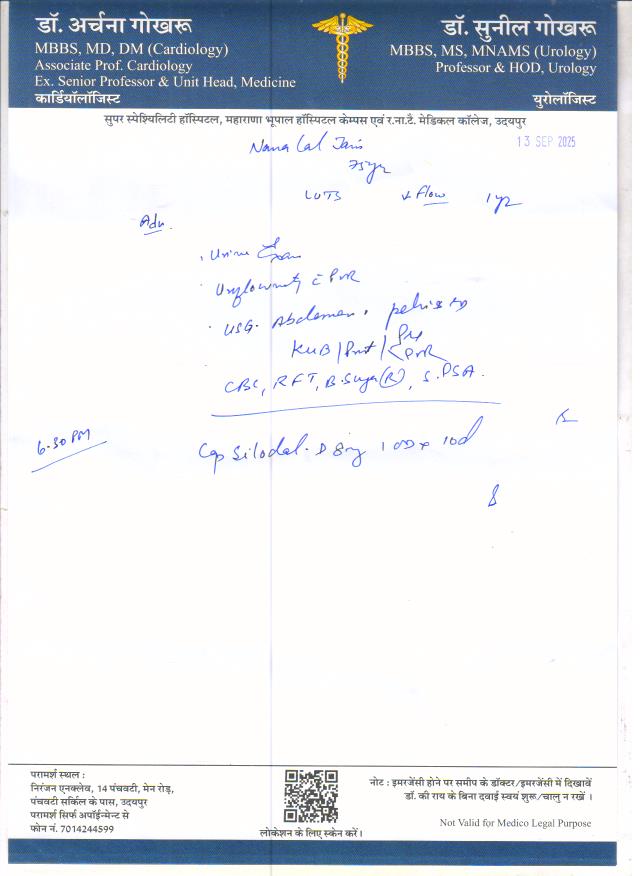 डॉ. अर्चना गोखरू
MBBS, MD, DM (Cardiology)
Associate Prof. Cardiology
Ex. Senior Professor & Unit Head, Medicine
कार्डियॉलॉजिस्ट
डॉ. सुनील गोखरू
MBBS, MS, MNAMS (Urology)
Professor & HOD, Urology
युरोलॉजिस्ट
सुपर स्पेश्यिलिटी हॉस्पिटल, महाराणा भूपाल हॉस्पिटल केम्पस एवं र.ना.टै. मेडिकल कॉलेज, उदयपुर
13 SEP 2025
Nana Lal Jain
75yr
LUTS ↓ Flow 1yr
Adv.
. Urine Exam
. Uroflowmetry c̄ PVR
. USG. Abdomen. pelvis
KUB/Prost/ PVR
CBC, RFT, B.Sugar (R), S.PSA.
6.30 PM
Cap Silodal-D 8mg 1 OD x 10d
परामर्श स्थल :
निरंजन एनक्लेव, 14 पंचवटी, मेन रोड़,
पंचवटी सर्किल के पास, उदयपुर
परामर्श सिर्फ अपॉईन्मेन्ट से
फोन नं. 7014244599
लोकेशन के लिए स्केन करें।
नोट : इमरजेंसी होने पर समीप के डॉक्टर/इमरजेंसी में दिखावें
डॉ. की राय के बिना दवाई स्वयं शुरू/चालु न रखें ।
Not Valid for Medico Legal Purpose